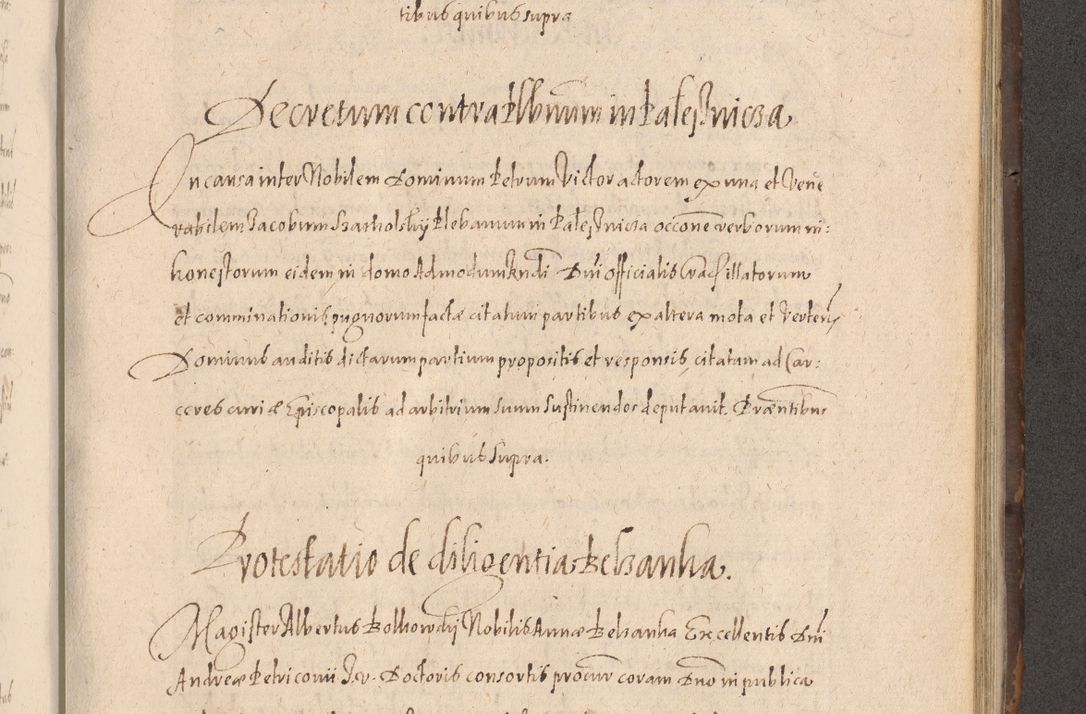 tibus quibus supra
Decretum contra Plbnūm in Palestnicza
In causa inter Nobilem Dominum Petrum Victor actorem ex una et Vene
rabilem Jacobum Plebanum in Palestnicza occōne verborum in:
honestorum eidem in domo Admodum Rndi Dni officialis
et comminationis pugnorum factæ citatum partibus ex altera mota et vertente
Dominus auditis dictarum partium propositis et responsis, citatum ad Car:
ceres curiæ Episcopalis ad arbitrium suum sustinendos deputavit. Præntibus
quibus supra.
Protestatio de diligentia Belzanka.
Magister Albertus Nobilis Annæ Belzanka Excellentis Dni
Andreæ Petriconii J. v. Doctoris consortis procur coram Dno in publica